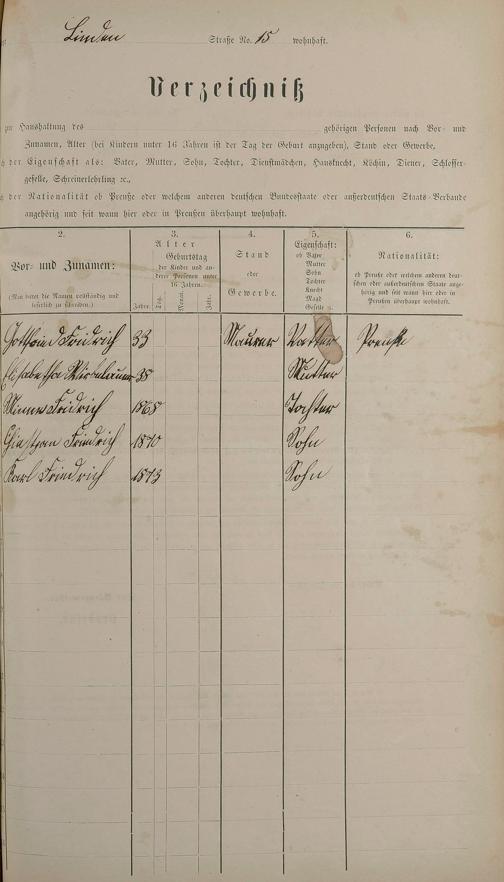 Linden Straße No. 15 wohnhaft.
Verzeichniß
zur Haushaltung des gehörigen Personen nach Vor- und
Zunamen, Alter (bei Kindern unter 16 Jahren ist der Tag der Geburt anzugeben), Stand oder Gewerbe,
der Eigenschaft als: Vater, Mutter, Sohn, Tochter, Dienstmädchen, Hausknecht, Köchin, Diener, Schlosser-
geselle, Schreinerlehrling ꝛc.,
der Nationalität ob Preuße oder welchem anderen deutschen Bundesstaate oder außerdeutschen Staats-Verbande
angehörig und seit wann hier oder in Preußen überhaupt wohnhaft.
2. 3. 4. 5. 6.
Vor- und Zunamen:
(Man bittet die Namen vollständig und
leserlich zu schreiben.)
Alter
Geburtstag
der Kinder und an-
derer Personen unter
16 Jahren.
Jahre. Tag. Monat. Jahr.
Stand
oder
Gewerbe.
Eigenschaft:
ob Vater
Mutter
Sohn
Tochter
Knecht
Magd
Geselle ꝛc.
Nationalität:
ob Preuße oder welchem anderen deut-
schen oder außerdeutschen Staate ange-
hörig und seit wann hier oder in
Preußen überhaupt wohnhaft.
Gottfried Friedrich 33 Maurer Vatter Preuße
Elisabetha 38 Mutter
Friedrich 1868 Tochter
Friedrich 1870 Sohn
Karl Friedrich 1873 Sohn